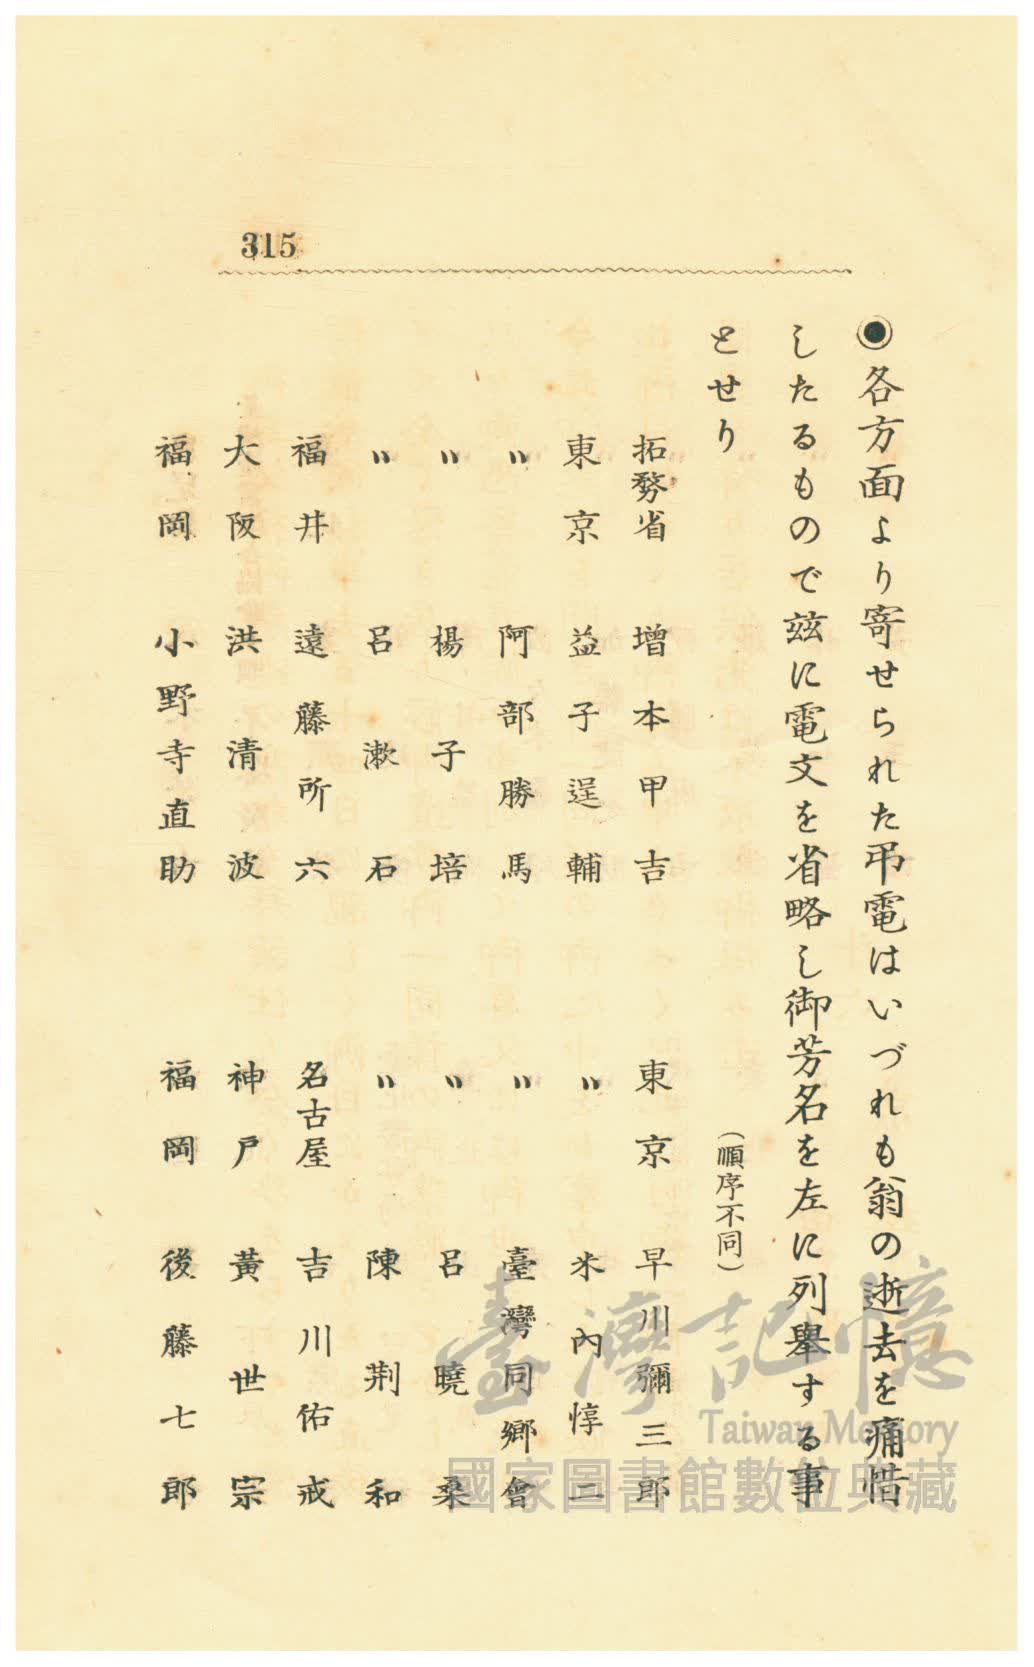 315
◉各方面より寄せられた弔電はいづれも翁の逝去を痛惜
したるもので玆に電文を省略し御芳名を左に列擧する事
とせり
(順序不同)
拓務省 增本甲吉
東京 早川彌三郎
東京 益子逞輔
〃 米內惇二
〃 阿部勝馬
〃 臺灣同鄉會
〃 楊子培
〃 呂曉桑
〃 呂漱石
〃 陳荆和
福井 遠藤所六
名古屋 吉川佑戒
大阪 洪清波
神戶 黃世宗
福岡 小野寺直助
福岡 後藤七郎
臺灣記憶
Taiwan Memory
國家圖書館數位典藏